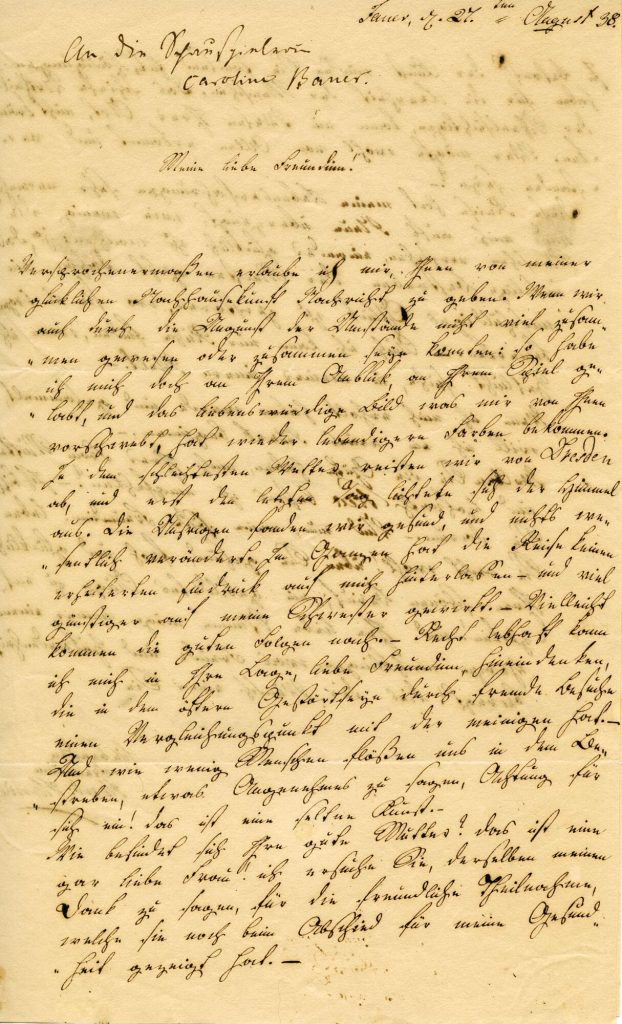 Jauer, d. 27. ten August 38.
An die Schauspielerin
Caroline Bauer.
Meine liebe Freundin!
Versprochenermaaßen erlaube ich mir, Ihnen von meiner
glücklichen Nachhausekunft Nachricht zu geben. Wenn wir
auch durch die Ungunst der Umstände nicht viel zusam-
men gewesen oder zusammen seyn konnten: so habe
ich mich doch an Ihrem Anblick, an Ihrem Spiel ge-
labt, und das liebenswürdige Bild was mir von Ihnen
vorschwebt, hat wieder lebendigere Farben bekommen.
In dem schlechtesten Wetter reisten wir von Dresden
ab, und erst den letzten Tag lichtete sich der Himmel
aus. Die Unsrigen fanden wir gesund, und nichts we-
sentlich verändert. Im Ganzen hat die Reise keinen
erheiterten Eindruck auf mich hinterlassen – und viel
günstiger auf meine Schwester gewirkt. – Vielleicht
kommen die guten Folgen nach. – Recht lebhaft kann
ich mich in Ihre Lage, liebe Freundin, hineindenken,
die in dem öftern Gestörtseyn durch fremde Besuche
einen Vergleichungspunkt mit der meinigen hat. –
Und wie wenig Menschen flößen uns in dem Be-
streben, etwas Angenehmes zu sagen, Achtung für
sich ein! das ist eine seltne Kunst. –
Wie befindet sich Ihre gute Mutter? das ist eine
gar liebe Frau! ich ersuche Sie, derselben meinen
Dank zu sagen, für die freundliche Theilnahme,
welche sie noch beim Abschied für meine Gesund-
heit gezeigt hat. –